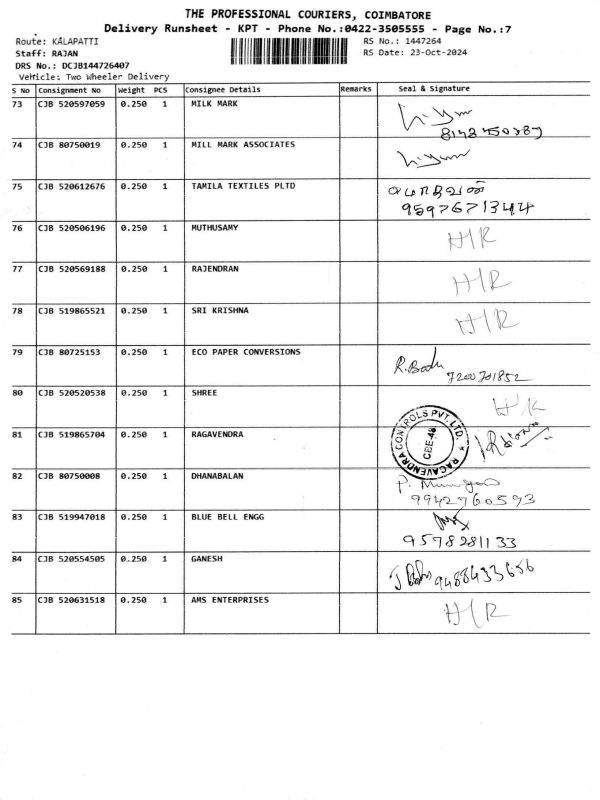 THE PROFESSIONAL COURIERS, COIMBATORE
Delivery Runsheet - KPT - Phone No.:0422-3505555 - Page No.:7
Route: KALAPATTI
RS No.: 1447264
Staff: RAJAN
RS Date: 23-Oct-2024
DRS No.: DCJB144726407
Vehicle: Two Wheeler Delivery
S No Consignment No Weight PCS Consignee Details Remarks Seal & Signature
73 CJB 520597059 0.250 1 MILK MARK
74 CJB 80750019 0.250 1 MILL MARK ASSOCIATES
75 CJB 520612676 0.250 1 TAMILA TEXTILES PLTD
9597671344
76 CJB 520506196 0.250 1 MUTHUSAMY H/R
77 CJB 520569188 0.250 1 RAJENDRAN H/R
78 CJB 519865521 0.250 1 SRI KRISHNA H/R
79 CJB 80725153 0.250 1 ECO PAPER CONVERSIONS R. Babu
7200701852
80 CJB 520520538 0.250 1 SHREE H/R
81 CJB 519865704 0.250 1 RAGAVENDRA RAGAVENDRA CONTROLS PVT. LTD. CBE-48
82 CJB 80750008 0.250 1 DHANABALAN P. Murugan
9942760593
83 CJB 519947018 0.250 1 BLUE BELL ENGG
9578281133
84 CJB 520554505 0.250 1 GANESH 9488433656
85 CJB 520631518 0.250 1 AMS ENTERPRISES H/R